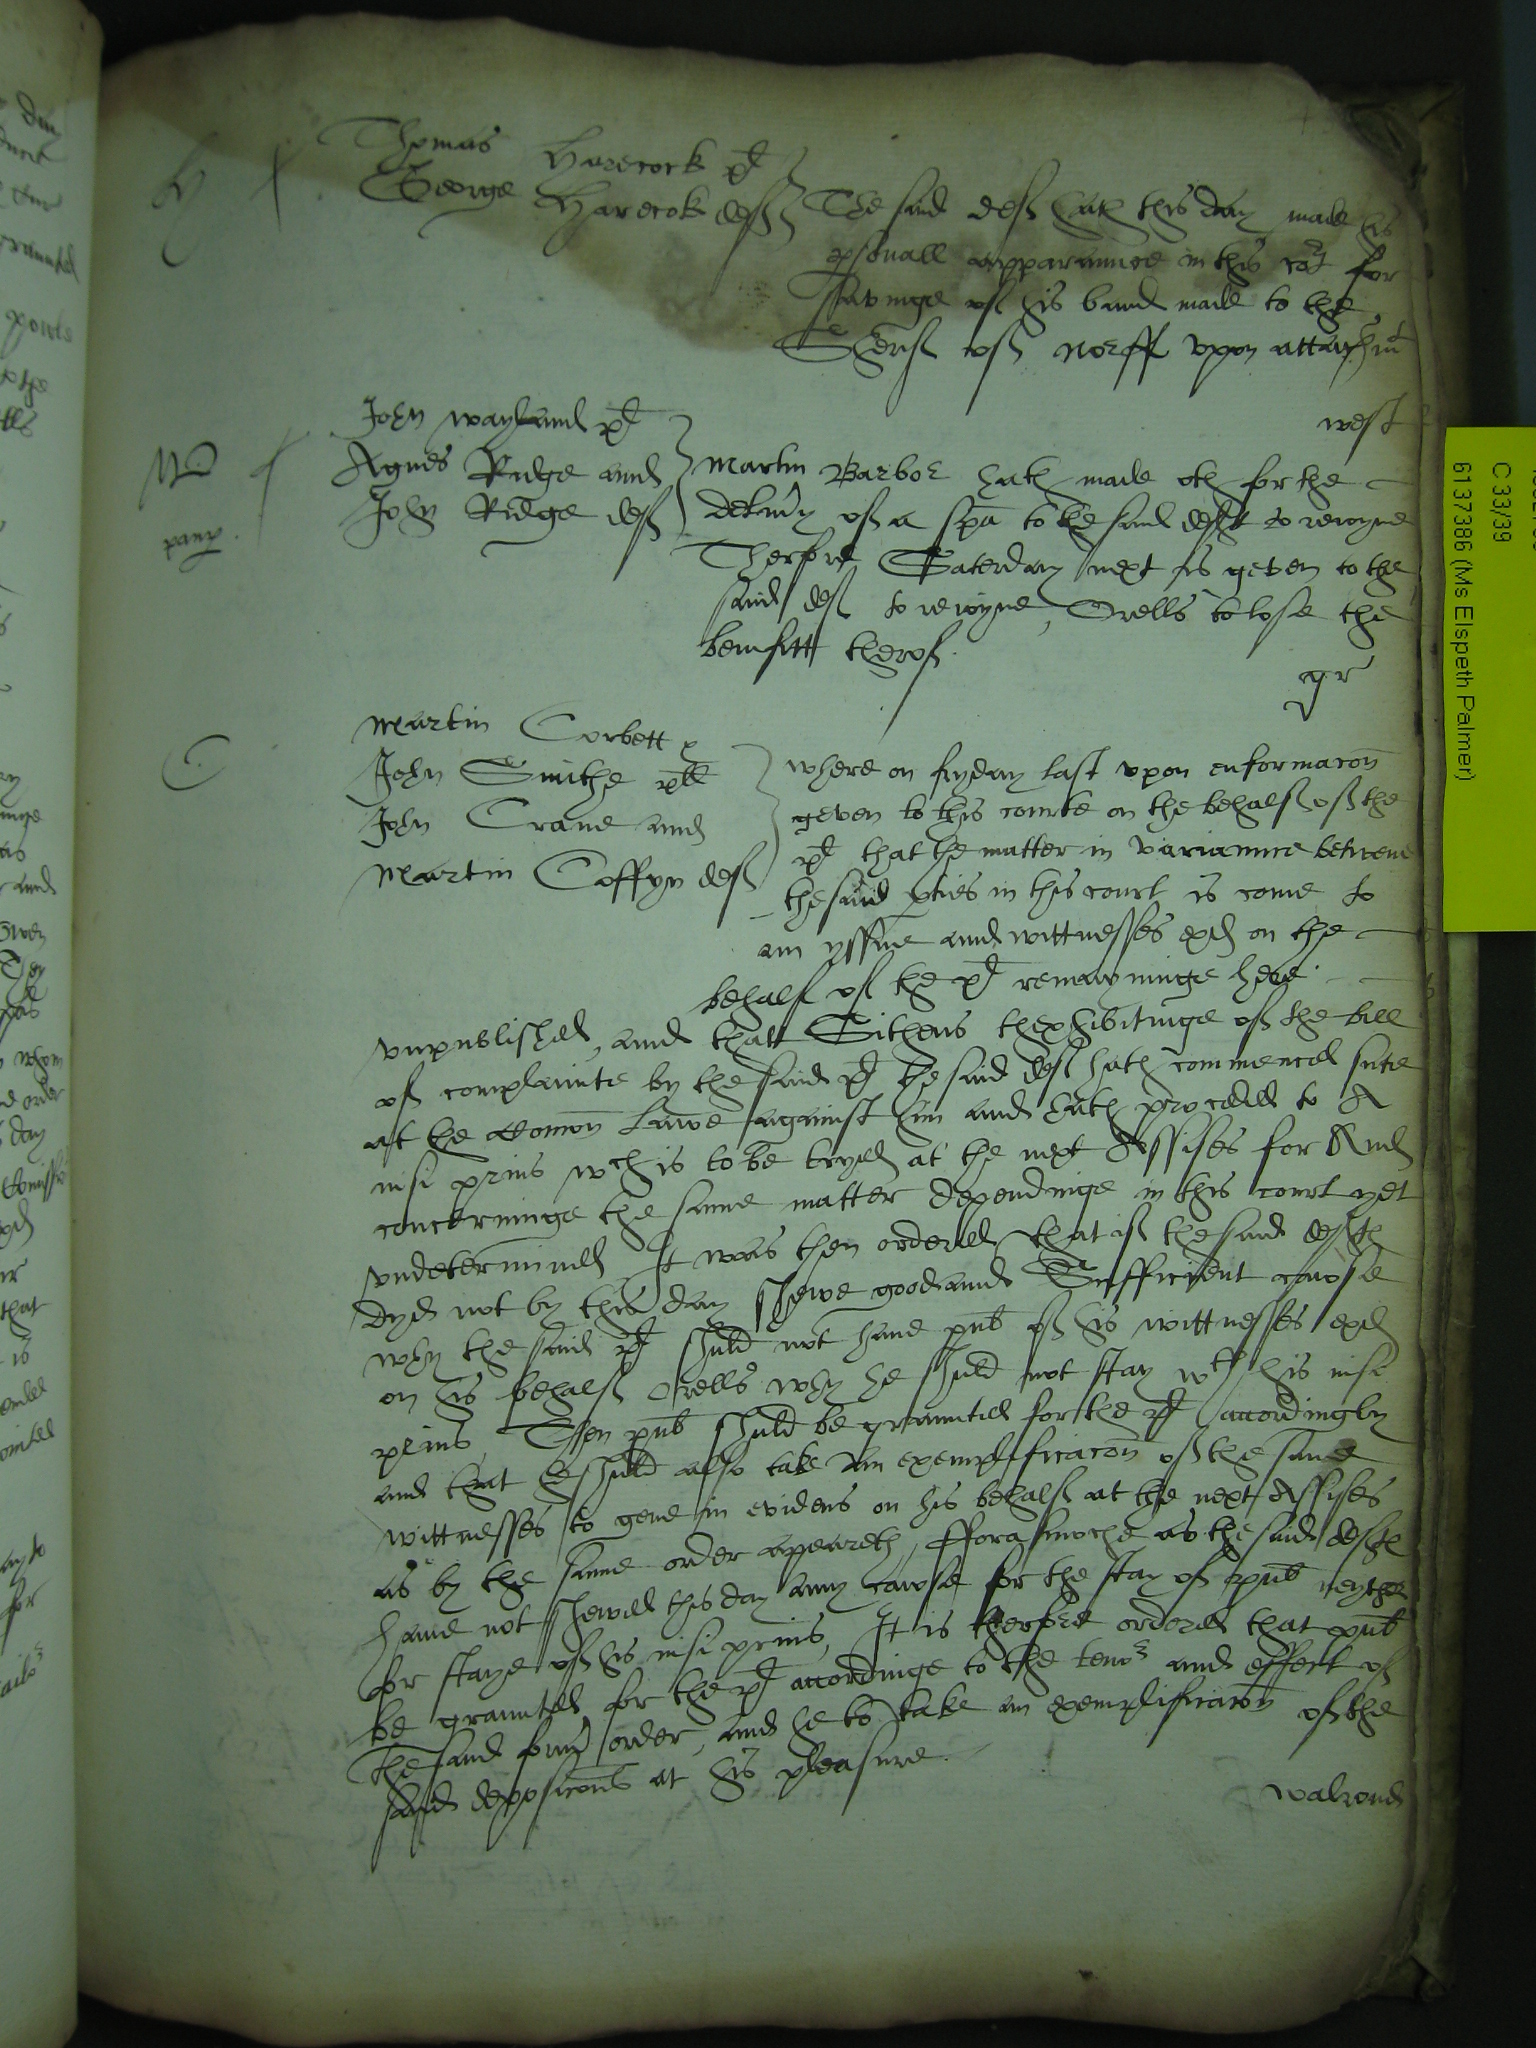 Thomas Harecock pl
George Harecok deff
The said deff hath this day made his
psonall apparaunce in this cot for
savinge of his band made to the
Sherif of Norff upon attachmt
west
John Wayland pl
Agnes Ridge and
John Ridge deff
Martin Barbor hath made oth for the
delivy of a spa to the said defts to reioyne
Therfore Saterday next is geven to the
said deff to reioyne, Orells to lose the
benifitt therof.
gr
pany
C
Martin Corbett
John Smithe pll
John Crane and
Martin Coffyn deff
where on fryday last upon enformacon
geven to this courte on the behalf of the
pl that the matter in variaunce betwene
the said pties in this court is come to
an yssue and wittnesses exd on the
behalf of the pl remayninge here
unpublished, and that Sithens thexhibitinge of the bill
of complainte by the said pl the said deff hath commenced sute
at the comon Lawe against him and hath proceded to A
nisi prius wch is to be tryed at the next Assises for
concerninge the same matter dependinge in this court yet
undetermined It was then ordered that if the said deft
dyd not by this day shewe good and Sufficient cawse
why the said pl shuld not have pub of his wittnesses exd
on his behalf Orells why he shuld not stay wth his nisi
prius, Then pub shuld be graunted for the pl accordingly
and that he shuld also take an exemplificacon of the same
wittnesses to geve in evidens on his behalf at the next Assises
as by the same order appeareth, fforasmoche as the said deft
have not shewed this day any cawse for the stay of pub neyther
for staye of his nisi prius, It is therfore ordered that pub
be graunted for the pl accordinge to the tenor and effect of
the said form order, and he to take an exemplificacon of the
said deposicons at his pleasure.
Walrond
C 33/39
6137386 (Ms Elspeth Palmer)